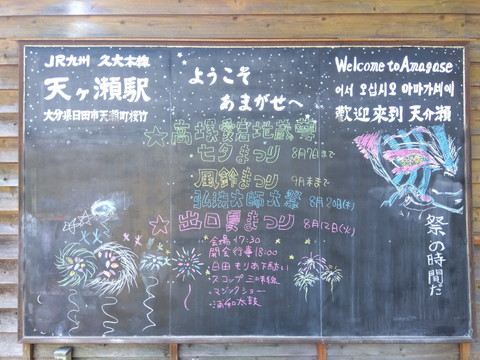 JR九州 久大本線
天ヶ瀬駅
大分県日田市天瀬町桜竹
ようこそ
あまがせへ
☆高塚愛宕地蔵尊
七夕まつり 8月7日まで
風鈴まつり 9月末まで
弘法大師大祭 8月20日(木)
☆出口夏まつり 8月12日(火)
会場17:30
開会行事18:00
・日田もりあげ
・スコップ三味線
・マジックショー
・浦和太鼓
Welcome to Amagase
어서 오십시오 아마가세에
歡迎來到 天介瀬
祭の時間だ